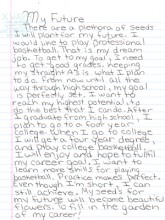 My Future
There are a plethora of seeds
I will plant for my future. I
would like to play professional
basketball. That is my dream
job. To get to my goal, I need
to get good grades. Keeping
my straight A's is what I plan
to do. From now until all the
way through high school, my goal
is perfectly set. I want to
reach my highest potential, to
do the best that I can do. After
I graduate from high school, I
to go to a four year
college. When I go to college
I will get a four year degree,
and play college basketball.
I will enjoy and hope to fulfill
my career goal. I want to
learn more skills for playing
basketball. Practice makes perfect.
Even though I'm short, I can
still achieve. My seeds for
my future will become beautiful
flowers to fill in the garden
of my career!